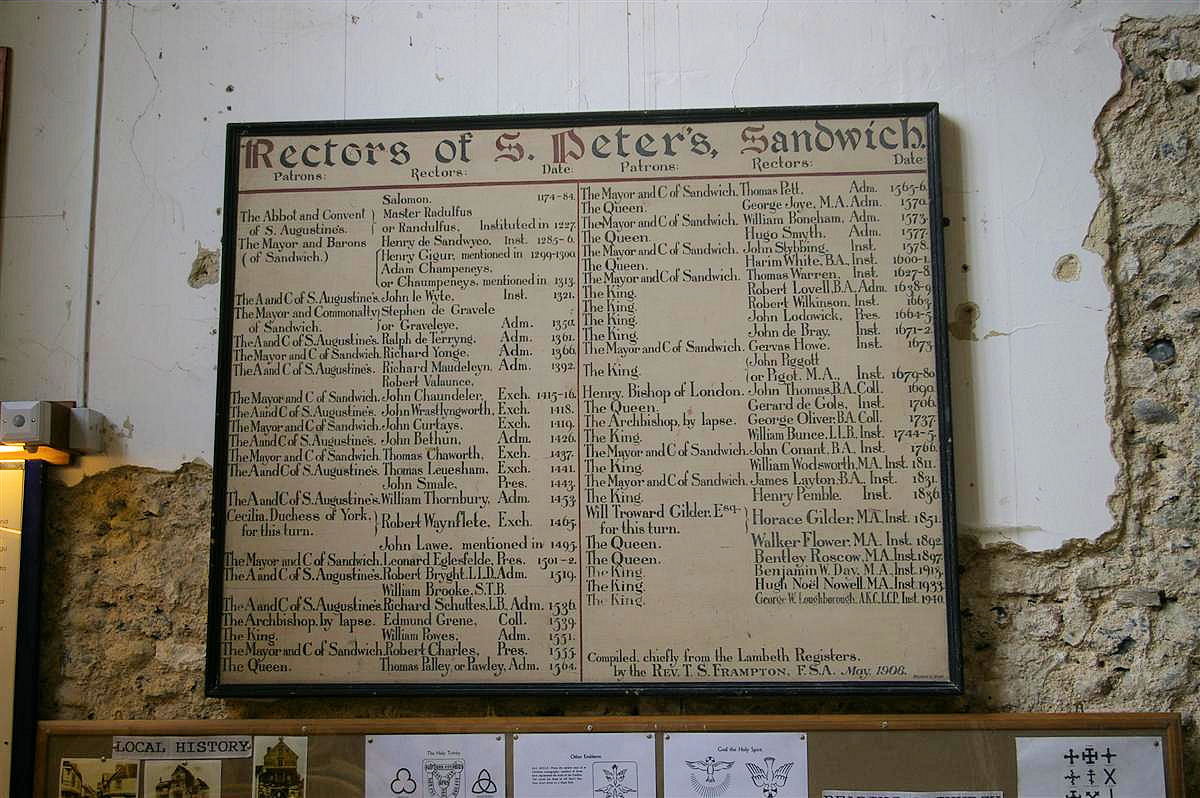 Rectors of S. Peter's, Sandwich.
Patrons: Rectors: Date: Patrons: Rectors: Date:
Salomon. 1174-84.
The Abbot and Convent Master Radulfus
of S. Augustine's. or Randulfus, Instituted in 1227.
The Mayor and Barons Henry de Sandwyco, Inst. 1285-6.
(of Sandwich.) Henry Gigur, mentioned in 1299-1300.
Adam Champeneys,
or Chaumpeneys, mentioned in 1313.
The A and C of S. Augustine's. John le Wyte, Inst. 1321.
The Mayor and Commonalty Stephen de Gravele
of Sandwich. or Graveleye, Adm. 1350.
The A and C of S. Augustine's. Ralph de Terryng, Adm. 1361.
The Mayor and C of Sandwich. Richard Yonge, Adm. 1366.
The A and C of S. Augustine's. Richard Maudeleyn, Adm. 1392.
Robert Valaunce,
The Mayor and C of Sandwich. John Chaundeler, Exch. 1415-16.
The A and C of S. Augustine's. John Wrastlyngworth, Exch. 1418.
The Mayor and C of Sandwich. John Curtays, Exch. 1419.
The A and C of S. Augustine's. John Bethun, Adm. 1426.
The Mayor and C of Sandwich. Thomas Chaworth, Exch. 1437.
The A and C of S. Augustine's. Thomas Leuesham, Exch. 1441.
John Smale, Pres. 1443.
The A and C of S. Augustine's. William Thornbury, Adm. 1453.
Cecilia, Duchess of York,
for this turn. Robert Waynflete, Exch. 1465.
John Lawe, mentioned in 1495.
The Mayor and C of Sandwich. Leonard Eglesfelde, Pres. 1501-2.
The A and C of S. Augustine's. Robert Bryght, LL.D, Adm. 1519.
William Brooke, S.T.B.
The A and C of S. Augustine's. Richard Schuttes, I.B. Adm. 1536.
The Archbishop, by lapse. Edmund Grene, Coll. 1539.
The King. William Powes, Adm. 1551.
The Mayor and C of Sandwich. Robert Charles, Pres. 1555.
The Queen. Thomas Pilley, or Pawley, Adm. 1564.
The Mayor and C of Sandwich. Thomas Pett, Adm. 1565-6.
The Queen. George Joye, M.A. Adm. 1570.
The Mayor and C of Sandwich. William Bonham, Adm. 1573.
The Queen. Hugo Smyth, Adm. 1577.
The Mayor and C of Sandwich. John Stybbing, Inst. 1578.
The Queen. Harim White, B.A., Inst. 1600-1.
The Mayor and C of Sandwich. Thomas Warren, Inst. 1627-8.
The King. Robert Lovell, B.A. Adm. 1638-9.
The King. Robert Wilkinson, Inst. 1663.
The King. John Lodowick, Pres. 1664-5.
The King. John de Bray, Inst. 1671-2.
The Mayor and C of Sandwich. Gervas Howe, Inst. 1673.
The King. John Piggott
or Pigot, M.A., Inst. 1679-80.
Henry, Bishop of London. John Thomas, B.A. Coll. 1690.
The Queen. Gerard de Gols, Inst. 1706.
The Archbishop, by lapse. George Oliver, B.A. Coll. 1737.
The King. William Bunce, LL.B, Inst. 1744-5.
The Mayor and C of Sandwich. John Conant, B.A., Inst. 1766.
The King. William Wodsworth, M.A, Inst. 1811.
The Mayor and C of Sandwich. James Layton, B.A., Inst. 1831.
The King. Henry Pemble. Inst. 1836.
Will Troward Gilder, Esq.
for this turn. Horace Gilder, M.A, Inst. 1851.
The Queen. Walker Flower, M.A. Inst. 1892.
The Queen. Bentley Roscow, M.A. Inst. 1897.
The King. Benjamin W. Day, M.A., Inst. 1915.
The King. Hugh Noël Nowell, M.A. Inst. 1933.
The King. George W. Loughborough, A.K.C., L.C.P., Inst. 1940.
Compiled, chiefly from the Lambeth Registers,
by the Rev. T. S. Frampton, F.S.A. May, 1906.
LOCAL HISTORY
The Holy Trinity
Other Emblems
God the Holy Spirit